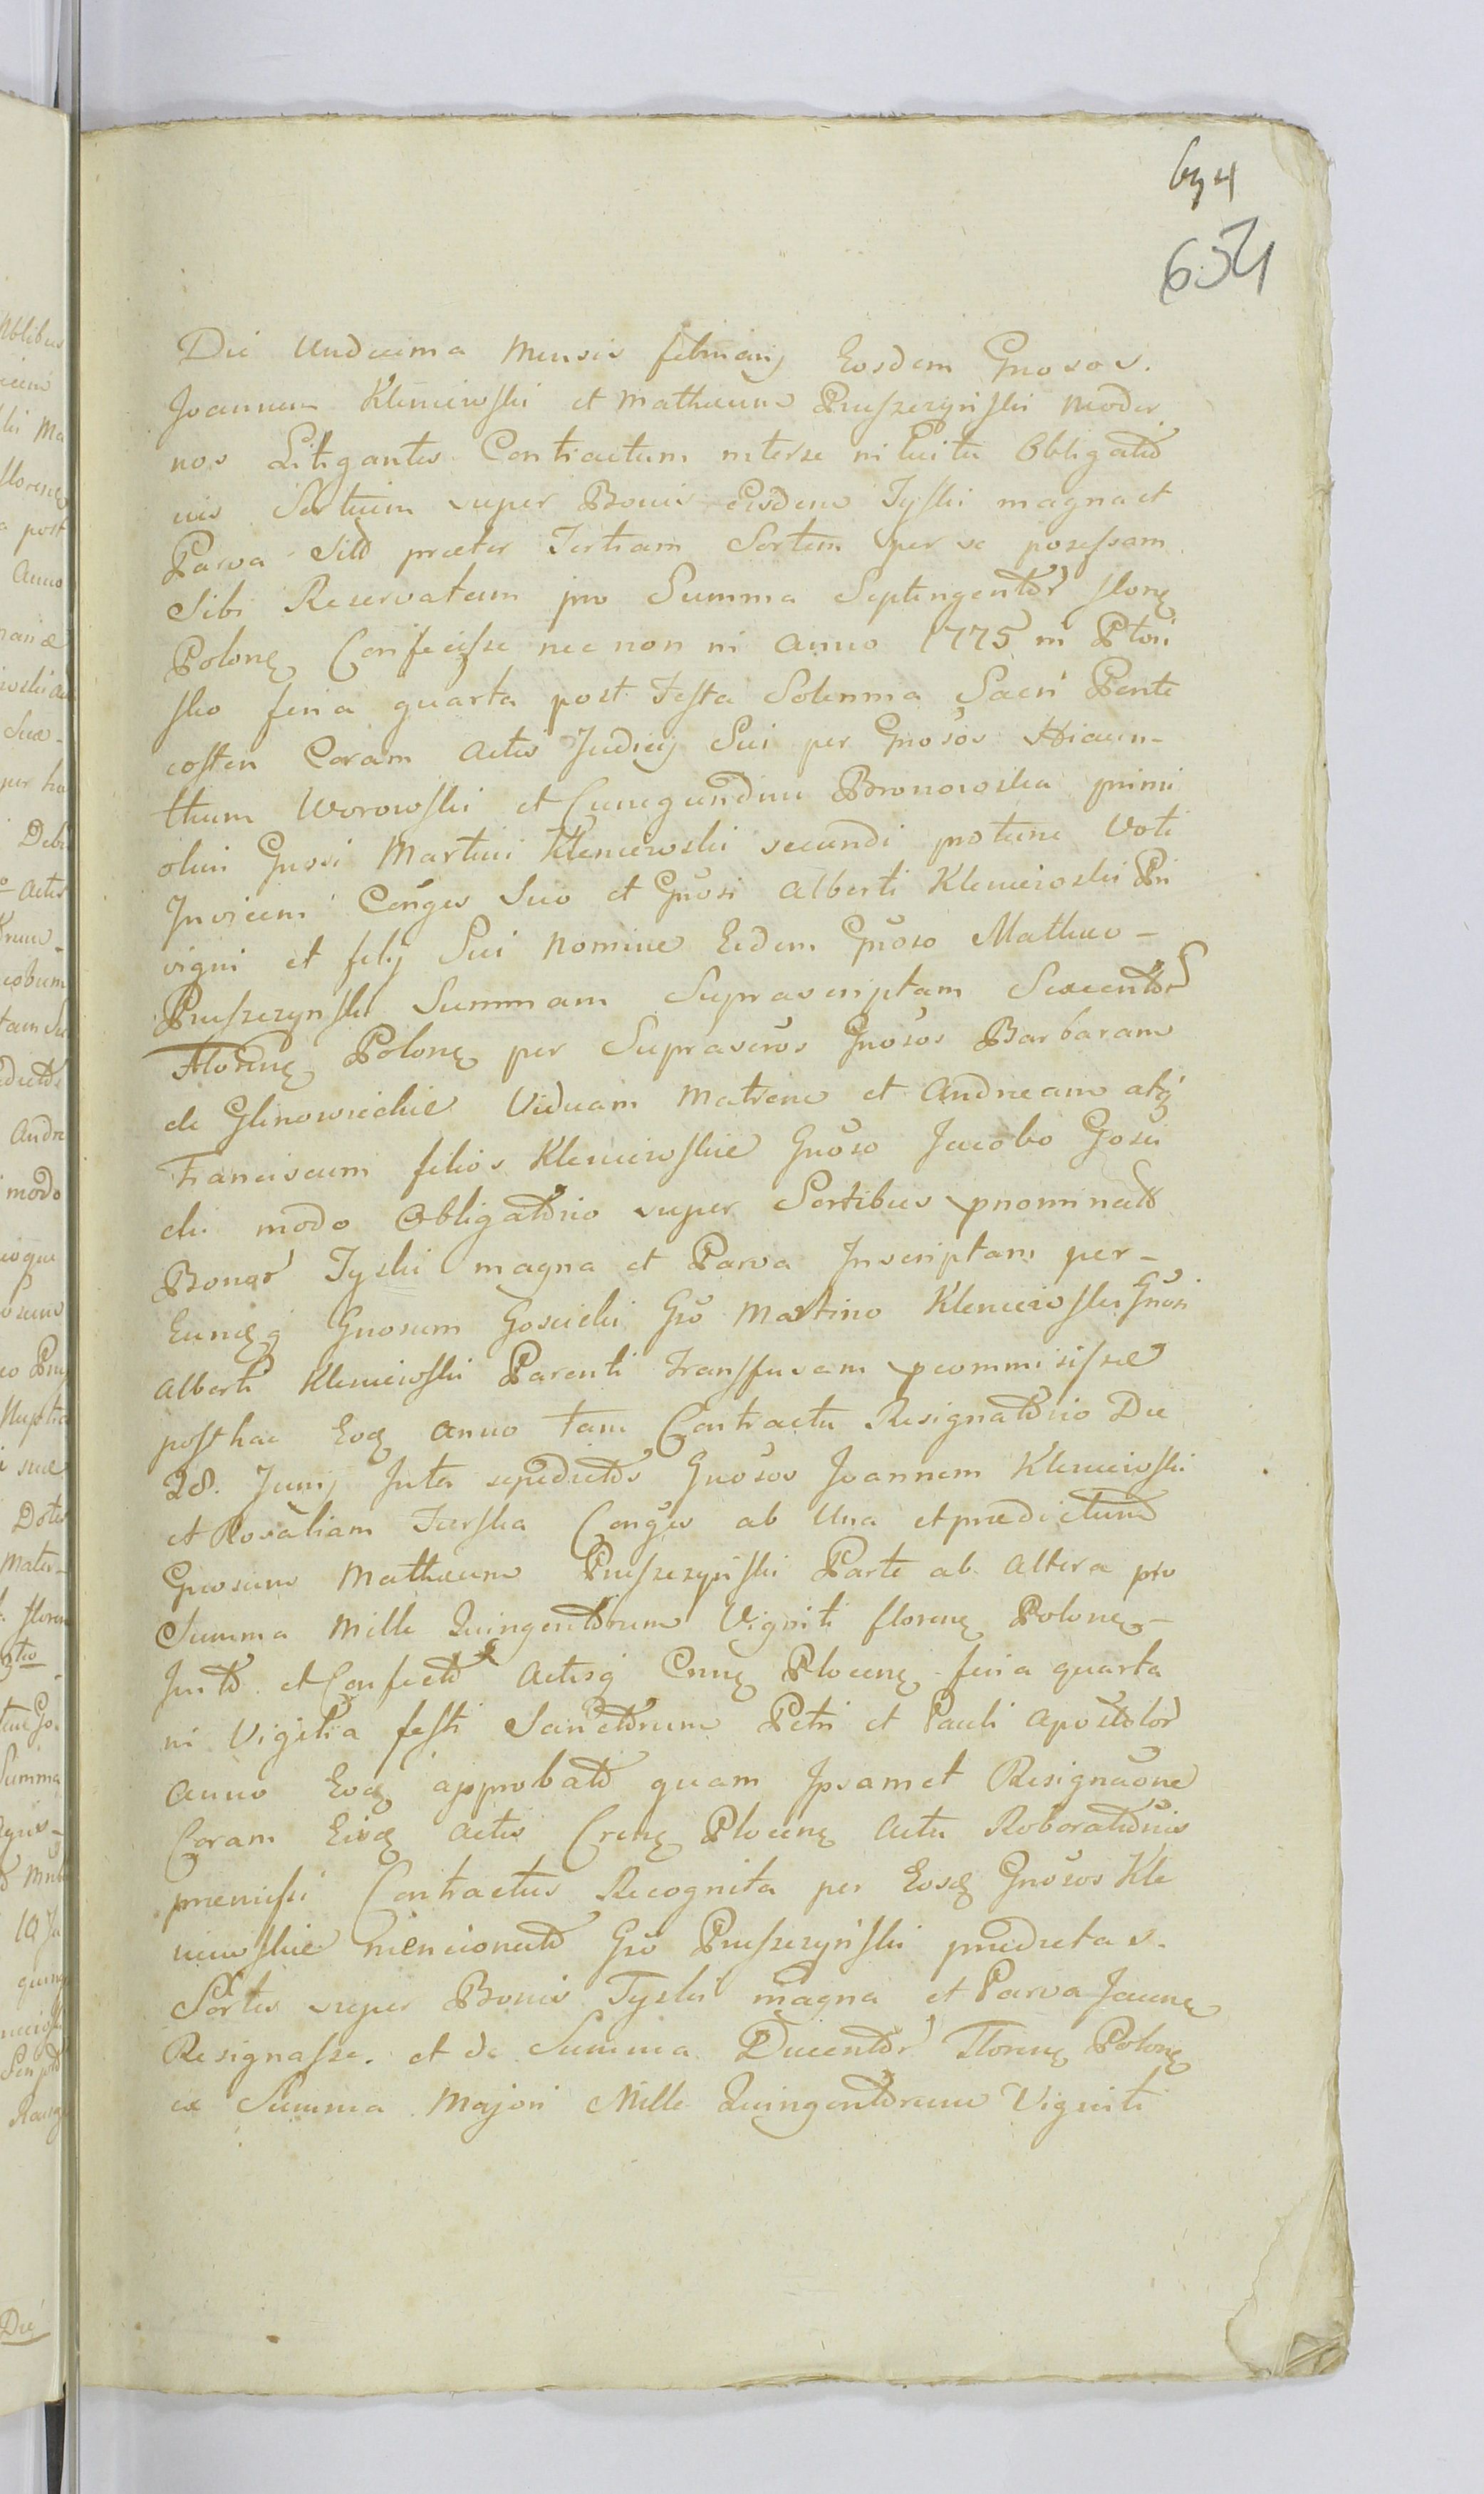 694
654
Die Undecima Mensis februarij Eosdem Gnosos.
Joannem Kleniewski et Mathaeum Pruszczyński Moder
nos Litigantes Contractum interse intuitu Obligatō
nis Sortium super Bonis Eisdem Tyski magna et
Parva Sitō praeter Tertiam Sortem per se possessam
Sibi Reservatam pro Summa Septingentōr florę
Polonę Confecisse nec non in anno 1775 in Płoń
sko feria quarta post Festa Solennia Sacri Pente
costen Coram Actis Judicij Sui per Gnosos Hiacin-
thum Worowski et Cunegundim Bronowska primi
olim Gnosi Martini Kleniewski secundi protunc Voti
Invicem Conges Suo et Gnosi Alberti Kleniewski Pri
vigni et filij Sui Nomine Eidem Gnoso Mathaeo -
Pruszczyński Summam Suprascriptam Sexcentōr
Florenę Polonę per Suprascros Gnosos Barbaram
de Glinowieckie Viduam Matrem et Andream atq
Franciscum filios Kleniewskie Gnoso Jacobo Gosci
cki modo Obligatōrio super Sortibus pnominatō
Bonor Tyski magna et Parva Inscriptam per -
Eumq Gnosum Goscicki Gso Martino Kleniewski Gnosi
Alberti Kleniewski Parenti Transfusam pcommisisse
posthac Eoq Anno tam Contractu Resignatōrio Die
28. Junij Inter sepedictōs Gnosos Joannem Kleniewski
et Rosaliam Turska Conges ab Una et praedictum
Gnosum Mathaeum Pruszczyński Parte ab Altera pro
Summa Mille Quingentōrum Viginti florenę Polonę -
Initō et Confectō Actisq Crnę Plocenę feria quarta
in Vigilia festi Sanctōrum Petri et Pauli Apostōlor
Anno Eoq approbatō quam Ipsamet Resignaōne
Coram Eisq Actis Crenę Plocenę Actu Roboratōnis
praemissi Contractus Recognita per Eosq Gnosos Kle
niewskie mencionatō Gso Pruszczyński praedictas.
Sortes super Bonis Tyski magna et Parva Jacenę
Resignasse. et de Summa Ducentōr Florenę Polonę
ex Summa Majori Mille Quingentōrum Viginti